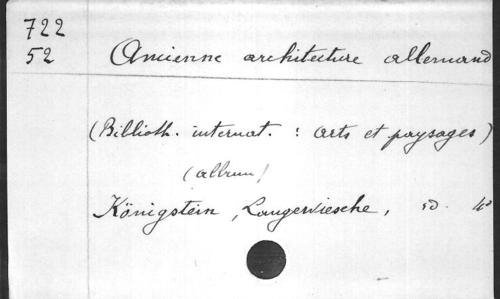 722
52 Ancienne architecture allemand
(Biblioth. internat. : arts et paysages)
(album)
Königstein, Langewiesche, sd. 4°